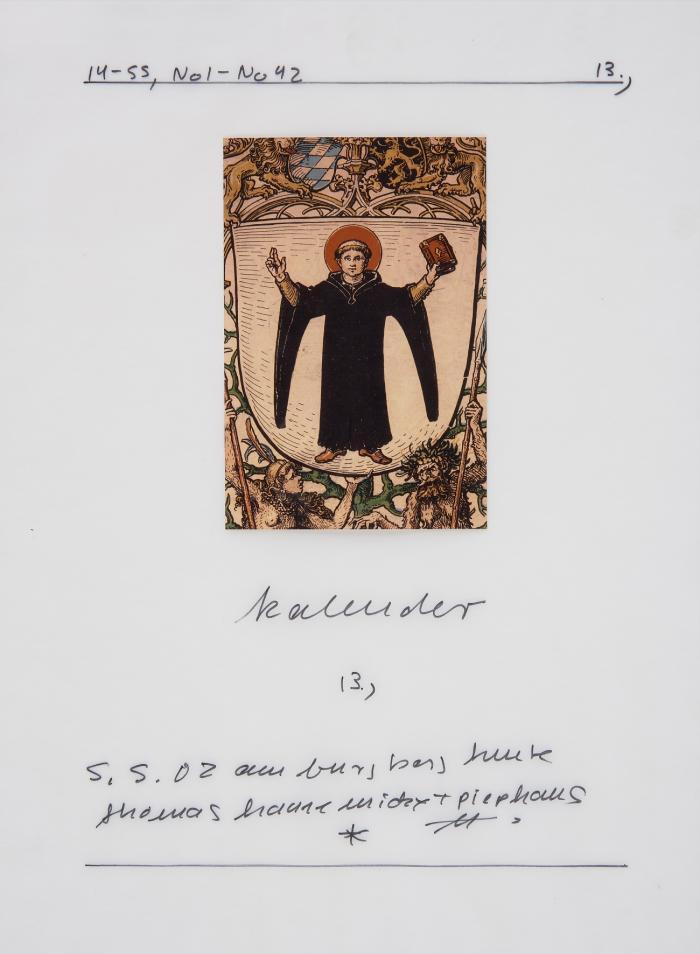 14-55, No1-No42 13.,
kalender
13.,
5. 5. 02 am burgberg heute
thomas hanne micky + piephans
*